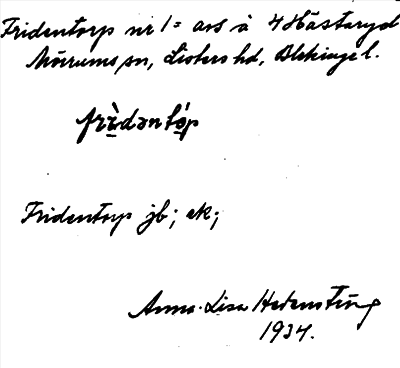 Fridentorp nr 1 = avs å 4 Hästaryd
Mörrums sn, Listers hd, Blekinge l.
frìdəntór̩p
Fridentorp jb; ek;
Anna-Lisa Hetensting
1934.